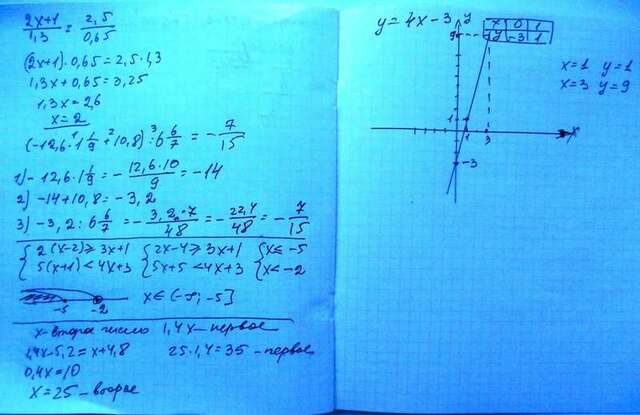 (2x+1)/1,3 = 2,5/0,65
(2x+1)·0,65 = 2,5·1,3
1,3x+0,65=3,25
1,3x=2,6
x=2
(-12,6·1 1/9 + 10,8) : 6 6/7 = -7/15
1) -12,6·1 1/9 = -(12,6·10)/9 = -14
2) -14+10,8=-3,2
3) -3,2 : 6 6/7 = -(3,2·7)/48 = -22,4/48 = -7/15
{2(x-2)≥3x+1 {2x-4≥3x+1 {x≤-5
{5(x+1)<4x+3 {5x+5<4x+3 {x<-2
-5 -2 x∈(-∞; -5]
x-второе число 1,4x-первое
1,4x-5,2=x+4,8 25·1,4=35 - первое
0,4x=10
x=25 - второе
y=4x-3
y
x 0 1
y -3 1
9
x=1 y=1
x=3 y=9
1
1 3 x
-3